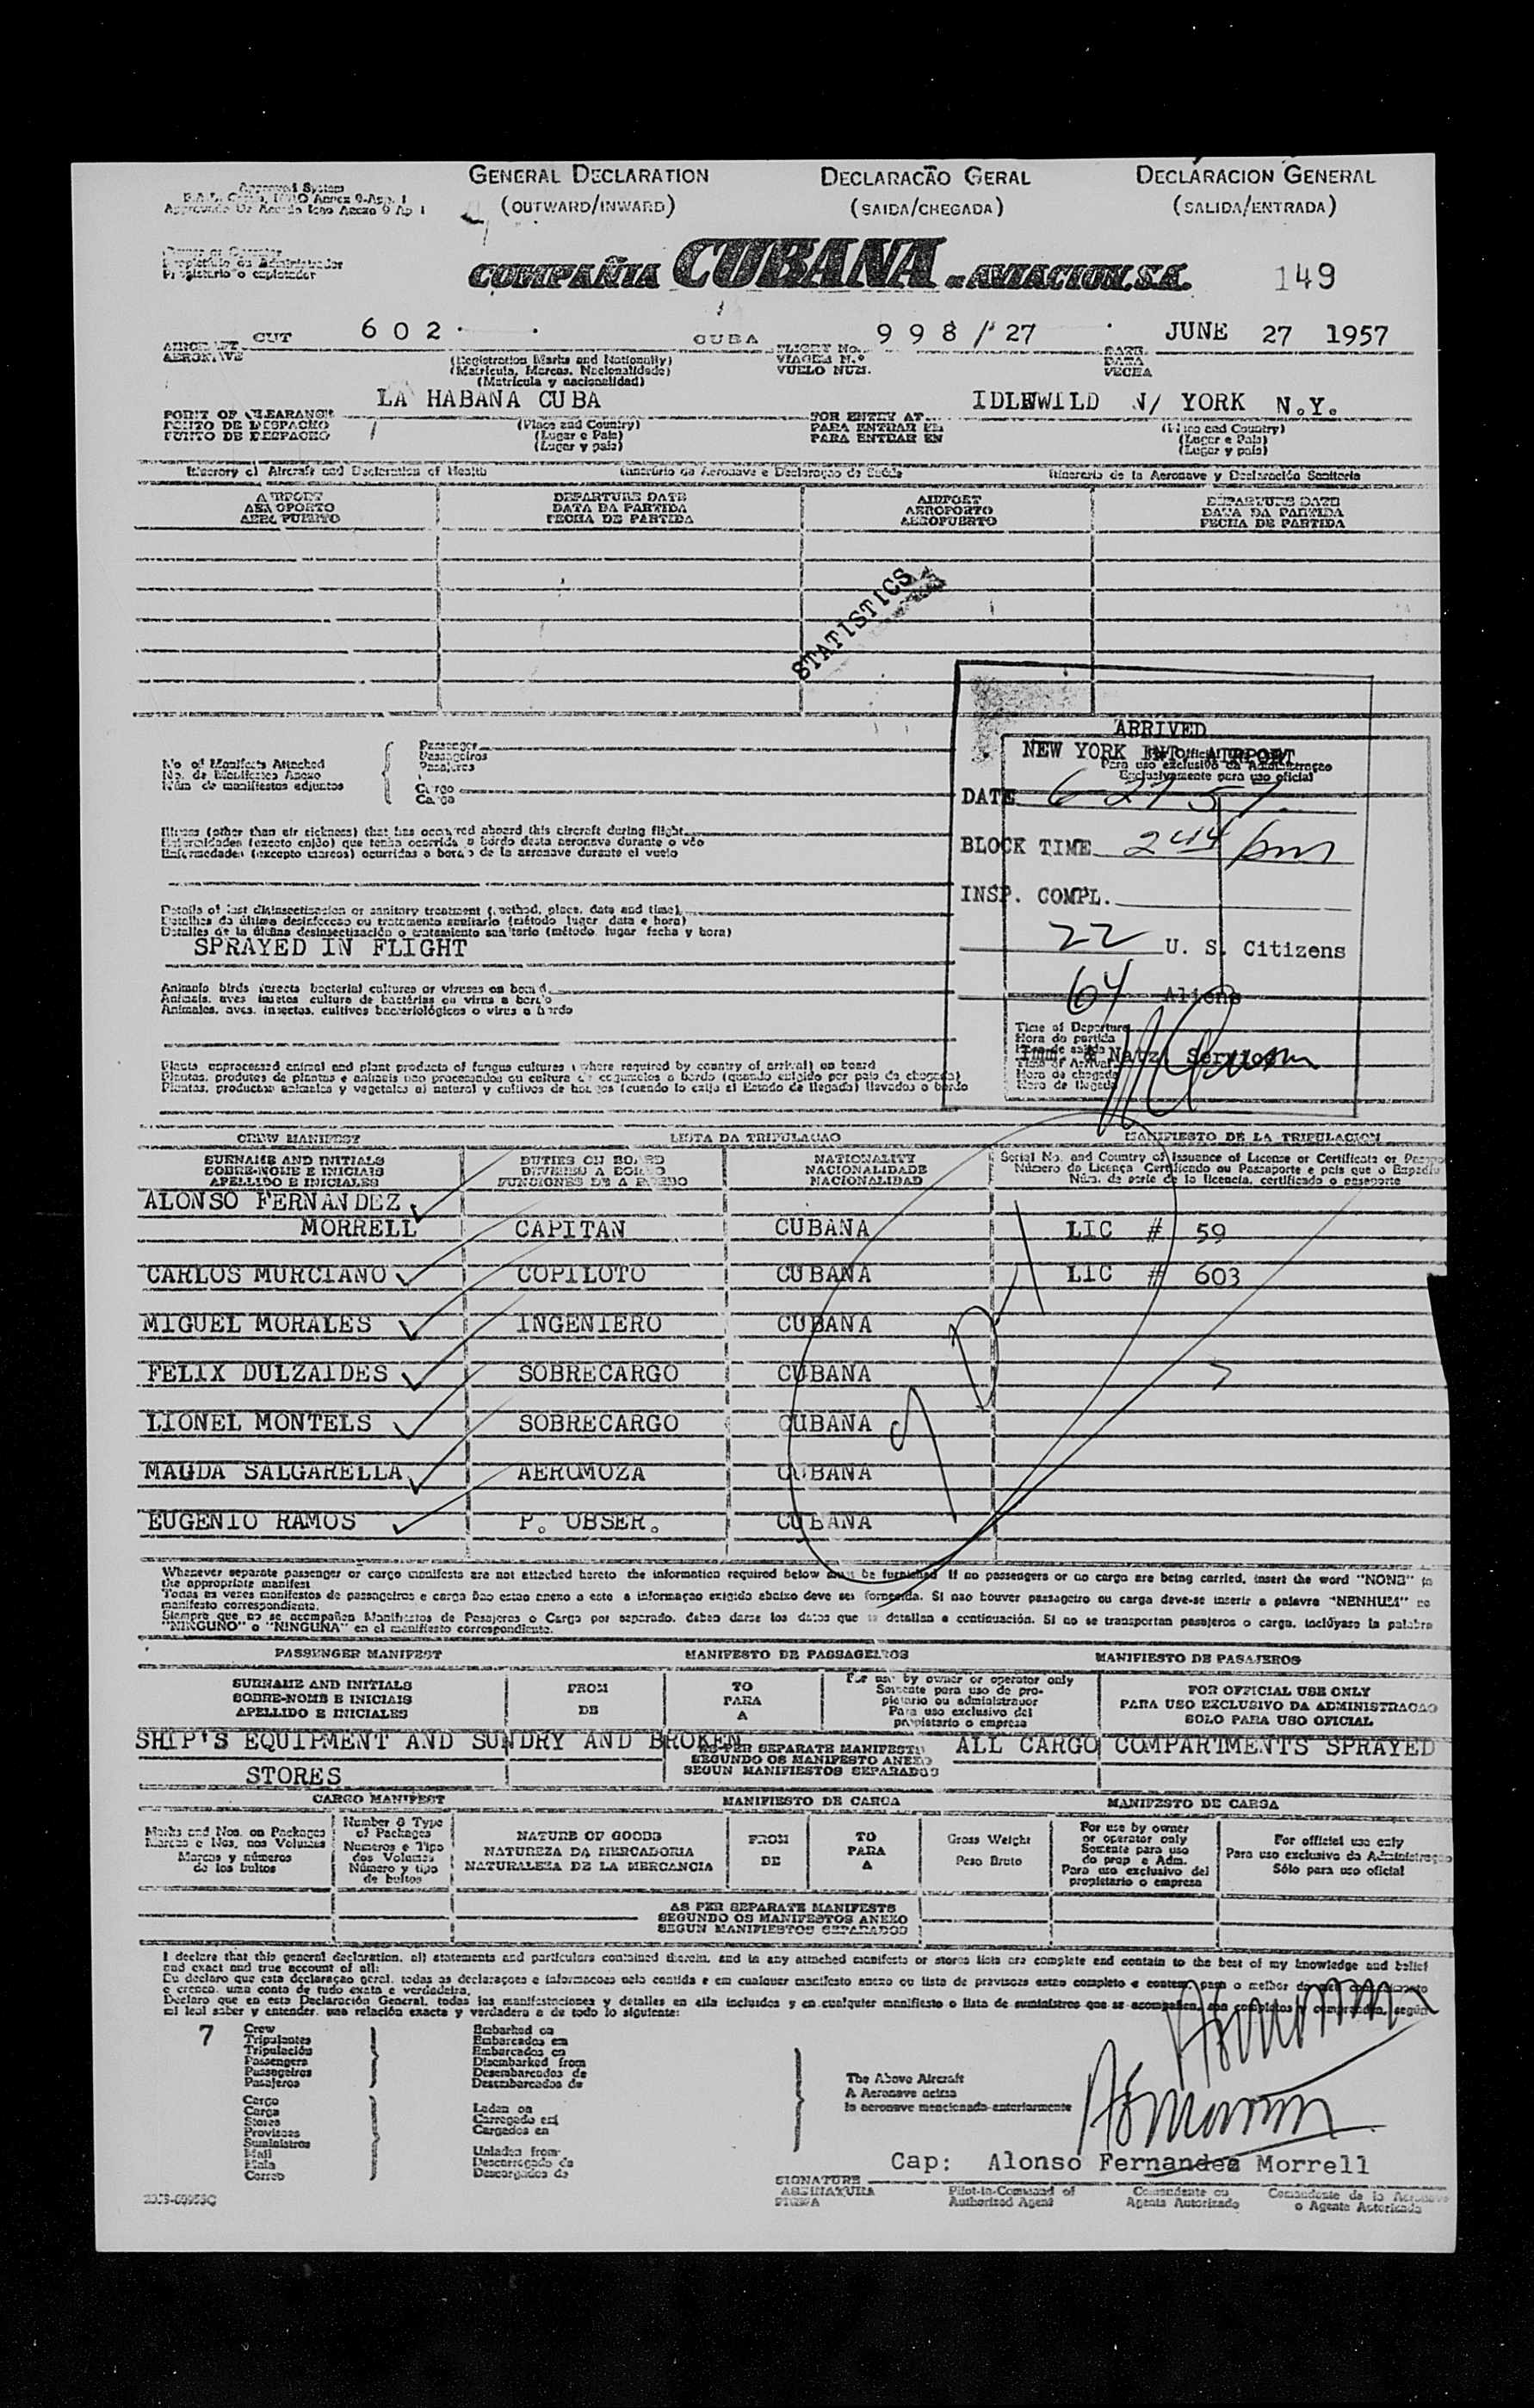 GENERAL DECLARATION
(OUTWARD/INWARD)
DECLARACÃO GERAL
(SAIDA/CHEGADA)
DECLARACION GENERAL
(SALIDA/ENTRADA)
Approved System
COMPAÑIA CUBANA DE AVIACION, S.A.
149
CUT 602 CUBA 998/27 JUNE 27 1957
(Registration Marks and Nationality)
(Matricula, Marcas, Nacionalidade)
(Matricula y nacionalidad)
FLIGHT No.
VIAGEM N.º
VUELO NUM.
LA HABANA CUBA IDLEWILD N/ YORK N.Y.
PORT OF CLEARANCE
PONTO DE DESPACHO
PUNTO DE DESPACHO
(Place and Country)
(Lugar e Pais)
(Lugar y pais)
FOR ENTRY AT
PARA ENTRAR EM
PARA ENTRAR EN
(Place and Country)
(Lugar e Pais)
(Lugar y pais)
Itinerary of Aircraft and Declaration of Health Itinerário da Aeronave e Declaração de Saúde Itinerario de la Aeronave y Declaración Sanitaria
AIRPORT
AEROPORTO
AEROPUERTO
DEPARTURE DATE
DATA DA PARTIDA
FECHA DE PARTIDA
AIRPORT
AEROPORTO
AEROPUERTO
DEPARTURE DATE
DATA DA PARTIDA
FECHA DE PARTIDA
STATISTICS
ARRIVED
NEW YORK INT. AIRPORT
Para uso exclusivo da Administraçao
Exclusivamente para uso oficial
DATE 6 27 57
BLOCK TIME 2 44 pm
INSP. COMPL.
22 U. S. Citizens
64 Aliens
Imm. & Natz. Service
Time of Departure
Hora da partida
Hora de salida
Time of Arrival
Hora da chegada
Hora de llegada
No of Manifests Attached
No. de Manifestos Anexo
Núm de manifiestos adjuntos
Passenger
Passageiros
Pasajeros
Cargo
Carga
Illness (other than air sickness) that has occurred aboard this aircraft during flight
Enfermidades (exceto enjão) que tenha ocorrida a bordo desta aeronave durante o vôo
Enfermedades (excepto mareos) ocurridas a bordo de la aeronave durante el vuelo
Details of last disinsectization or sanitary treatment (method, place, date and time)
Detalhes da última desinfeccao ou tratamento sanitario (método lugar, data e hora)
Detalles de la última desinsectización o tratamiento sanitario (método, lugar fecha y hora)
SPRAYED IN FLIGHT
Animals birds insects bacterial cultures or viruses on board
Animais, aves insetos cultura de bactérias ou virus a bordo
Animales, aves, insectos, cultivos bacteriológicos o virus a bordo
Plants unprocessed animal and plant products of fungus cultures (where required by country of arrival) on board
Plantas, produtos de plantas e animais nao processados ou cultura de cogumelos a bordo (quando exigido por pais de chegada)
Plantas, productos animales y vegetales al natural y cultivos de hongos (cuando lo exija el Estado de llegada) llevados a bordo
CREW MANIFEST LISTA DA TRIPULACAO MANIFIESTO DE LA TRIPULACION
SURNAME AND INITIALS
SOBRE-NOME E INICIAIS
APELLIDO E INICIALES
DUTIES ON BOARD
DEVERES A BORDO
FUNCIONES DE A BORDO
NATIONALITY
NACIONALIDADE
NACIONALIDAD
Serial No. and Country of Issuance of License or Certificate or
Número da Licença Certificado ou Passaporte e pais que o
Núm. de serie de la licencia, certificado o pasaporte
ALONSO FERNANDEZ
MORRELL CAPITAN CUBANA LIC # 59
CARLOS MURCIANO COPILOTO CUBANA LIC # 603
MIGUEL MORALES INGENIERO CUBANA
FELIX DULZAIDES SOBRECARGO CUBANA
LIONEL MONTELS SOBRECARGO CUBANA
MAGDA SALGARELLA AEROMOZA CUBANA
EUGENIO RAMOS P. OBSER. CUBANA
Whenever separate passenger or cargo manifests are not attached hereto the information required below must be furnished If no passengers or no cargo are being carried, insert the word "NONE" in
the appropriate manifest
Todas as vezes manifestos de passageiros e carga nao estao anexo a este a informaçao exigida abaixo deve ser fornecida. Si nao houver passageiro ou carga deve-se inserir a palavra "NENHUM" no
manifesto correspondiente.
Siempre que no se acompañen Manifiestos de Pasajeros o Carga por separado, deben darse los datos que se detallan a continuación. Si no se transportan pasajeros o carga, inclúyase la palabra
"NINGUNO" o "NINGUNA" en el manifiesto correspondiente.
PASSENGER MANIFEST MANIFESTO DE PASSAGEIROS MANIFIESTO DE PASAJEROS
SURNAME AND INITIALS
SOBRE-NOME E INICIAIS
APELLIDO E INICIALES
FROM
DE
TO
PARA
A
For use by owner or operator only
Somente para uso de pro-
pietario ou administrador
Para uso exclusivo del
propietario o empresa
FOR OFFICIAL USE ONLY
PARA USO EXCLUSIVO DA ADMINISTRACAO
SOLO PARA USO OFICIAL
SHIP'S EQUIPMENT AND SUNDRY AND BROKEN ALL CARGO COMPARTMENTS SPRAYED
STORES
AS PER SEPARATE MANIFESTS
SEGUNDO OS MANIFESTO ANEXO
SEGUN MANIFIESTOS SEPARADOS
CARGO MANIFEST MANIFIESTO DE CARGA MANIFESTO DE CARGA
Marks and Nos. on Packages
Marcas e Nos. nos Volumes
Marcas y números
de los bultos
Number & Type
of Packages
Numeros e Tipo
dos Volumes
Número y tipo
de bultos
NATURE OF GOODS
NATUREZA DA MERCADORIA
NATURALEZA DE LA MERCANCIA
FROM
DE
TO
PARA
A
Gross Weight
Peso Bruto
For use by owner
or operator only
Somente para uso
do prop e Adm.
Para uso exclusivo del
propietario o empresa
For official use only
Para uso exclusivo da Administraçao
Sólo para uso oficial
AS PER SEPARATE MANIFESTS
SEGUNDO OS MANIFESTOS ANEXO
SEGUN MANIFIESTOS SEPARADOS
I declare that this general declaration, all statements and particulars contained therein, and in any attached manifests or stores lists are complete and contain to the best of my knowledge and belief
and exact and true account of all:
Eu declaro que esta declaraçao geral, todas as declaraçoes e informacoes nela contida e em cualquer manifesto anexo ou lista de previsoes estao completo e contem para o melhor
e crenca, uma conta de tudo exata e verdadeira.
Declaro que en esta Declaración General, todas las manifestaciones y detalles en ella incluidos y en cualquier manifiesto o lista de suministros que se acompañen, son completos y comprenden, según
mi leal saber y entender, una relación exacta y verdadera a de todo lo siguiente:
7
Crew
Tripulantes
Tripulación
Passengers
Passageiros
Pasajeros
Embarked on
Embarcados em
Embarcados en
Disembarked from
Desembarcados de
Desembarcados de
Cargo
Carga
Stores
Provisoes
Suministros
Mail
Mala
Correo
Laden on
Carregado em
Cargados en
Unladen from
Descarregado da
Descargados de
The Above Aircraft
A Aeronave acima
la aeronave mencionada anteriormente
Cap: Alonso Fernandez Morrell
SIGNATURE
ASSINATURA
FIRMA
Pilot-in-Command of
Authorized Agent
Comandente ou
Agente Autorizado
Comandante de la Aeronave
o Agente Autorizado